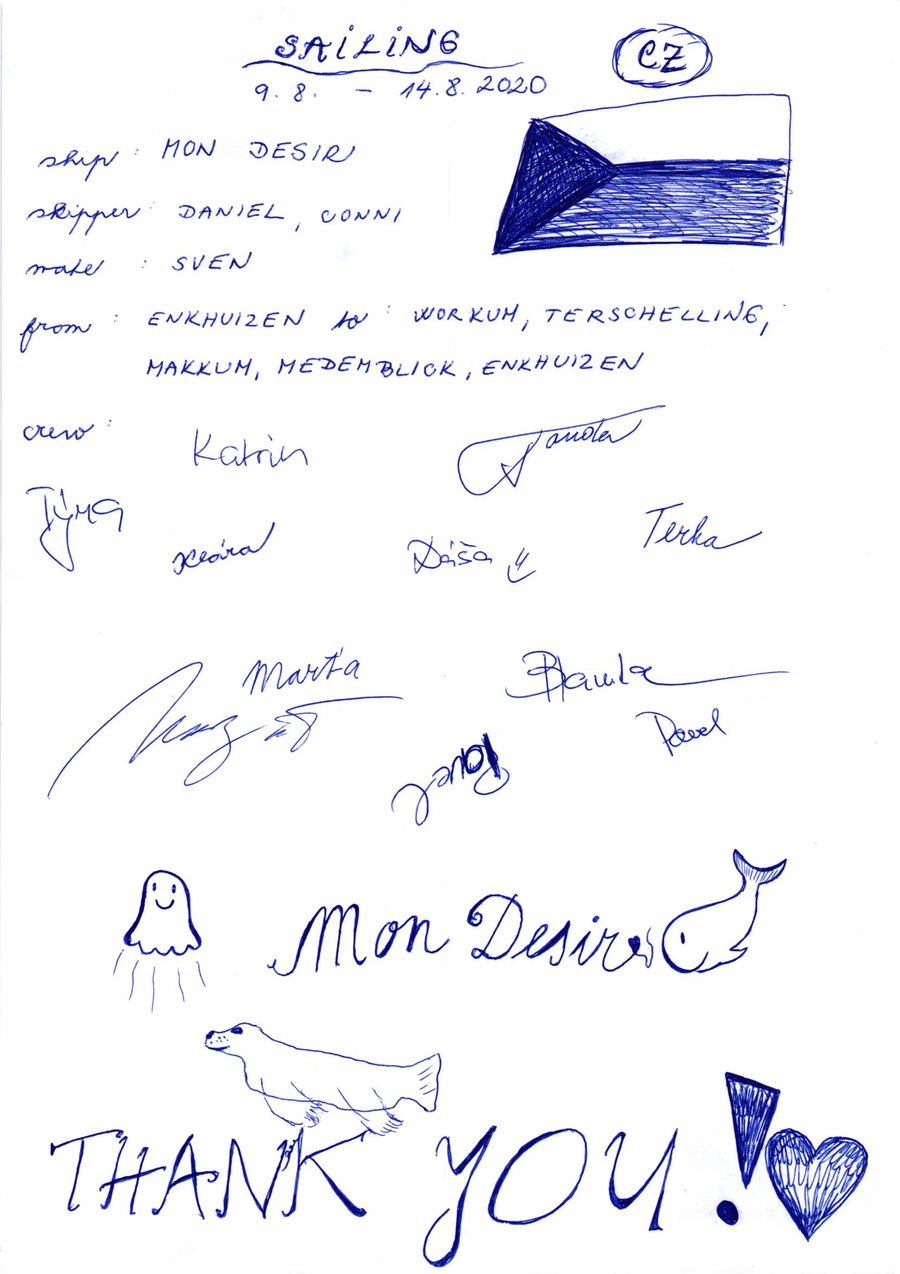 SAiLiNG
CZ
9. 8. – 14. 8. 2020
ship : MON DESIR
skipper : DANIEL, CONNI
mate : SVEN
from : ENKHUIZEN to : WORKUM, TERSCHELLING,
MAKKUM, MEDEMBLICK, ENKHUIZEN
crew :
Katrin
Týna
Klára
Dáša
Terka
Marťa
Blanka
Pavel
Pavel
Mon Desir
THANK YOU!